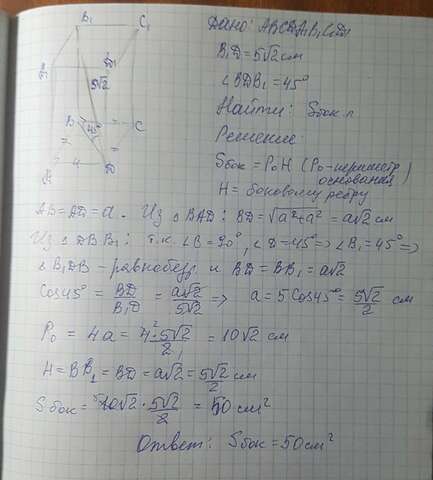 B₁
C₁
Дано: ABCDA₁B₁C₁D₁
A₁
D₁
5√2
B₁D = 5√2 см
∠BDB₁ = 45°
Найти: Sбок. п
B
45°
C
D
Решение:
Sбок = PоH (Pо - периметр основания)
H = боковому ребру
AB = AD = a. Из ΔBAD: BD = √a²+a² = a√2 см
Из ΔDBB₁: т.к. ∠B = 90°, ∠D = 45° => ∠B₁ = 45° =>
ΔB₁DB - равнобедр. и BD = BB₁ = a√2
Cos45° = BD/B₁D = a√2/5√2 => a = 5Cos45° = 5√2/2 см
Pо = 4a = 4·5√2/2 = 10√2 см
H = BB₁ = BD = a√2 = 5√2/2 см
Sбок = 10√2 · 5√2/2 = 50 см²
Ответ: Sбок = 50 см²